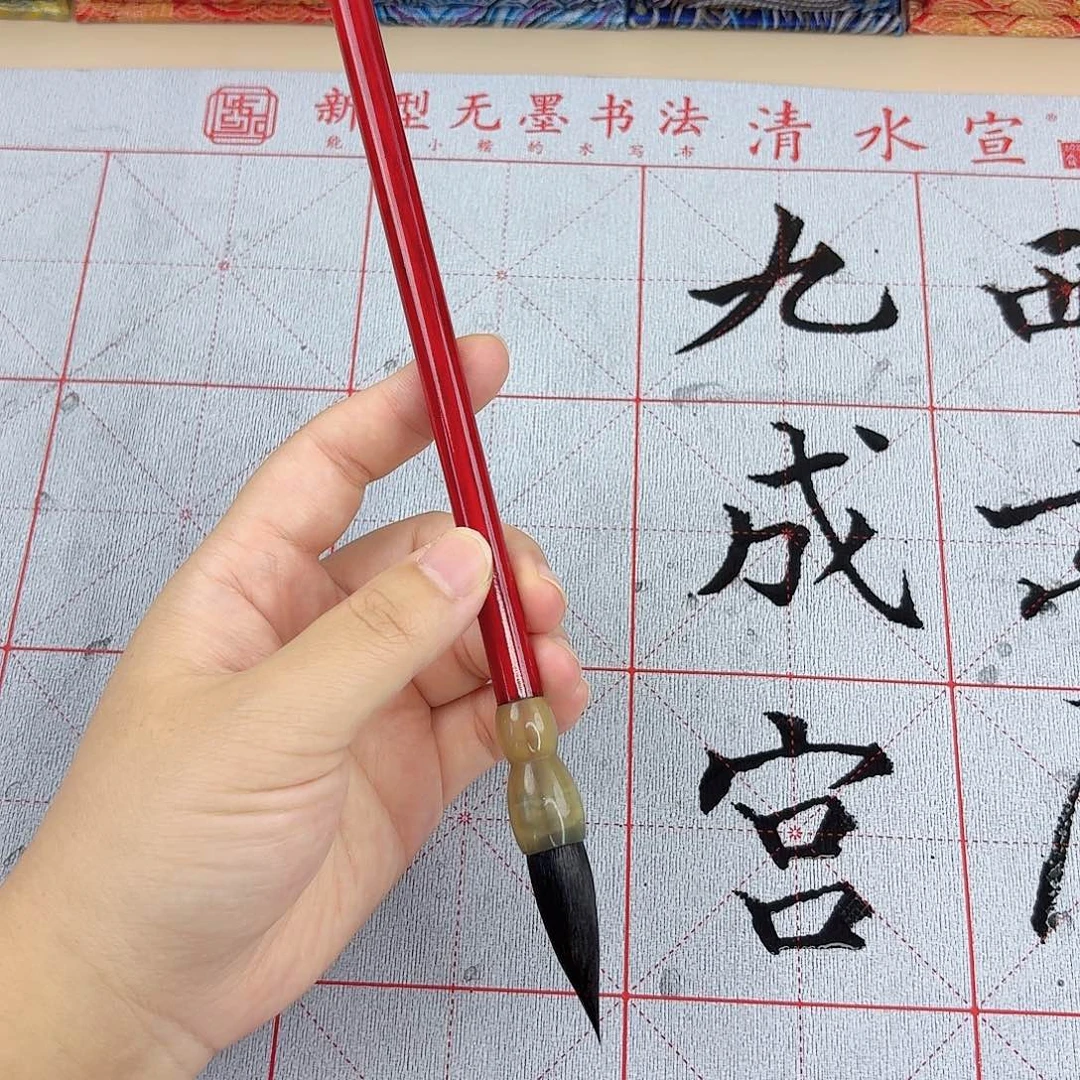 新型无墨书法 清水宣
小糯的水写布
九
成
宫